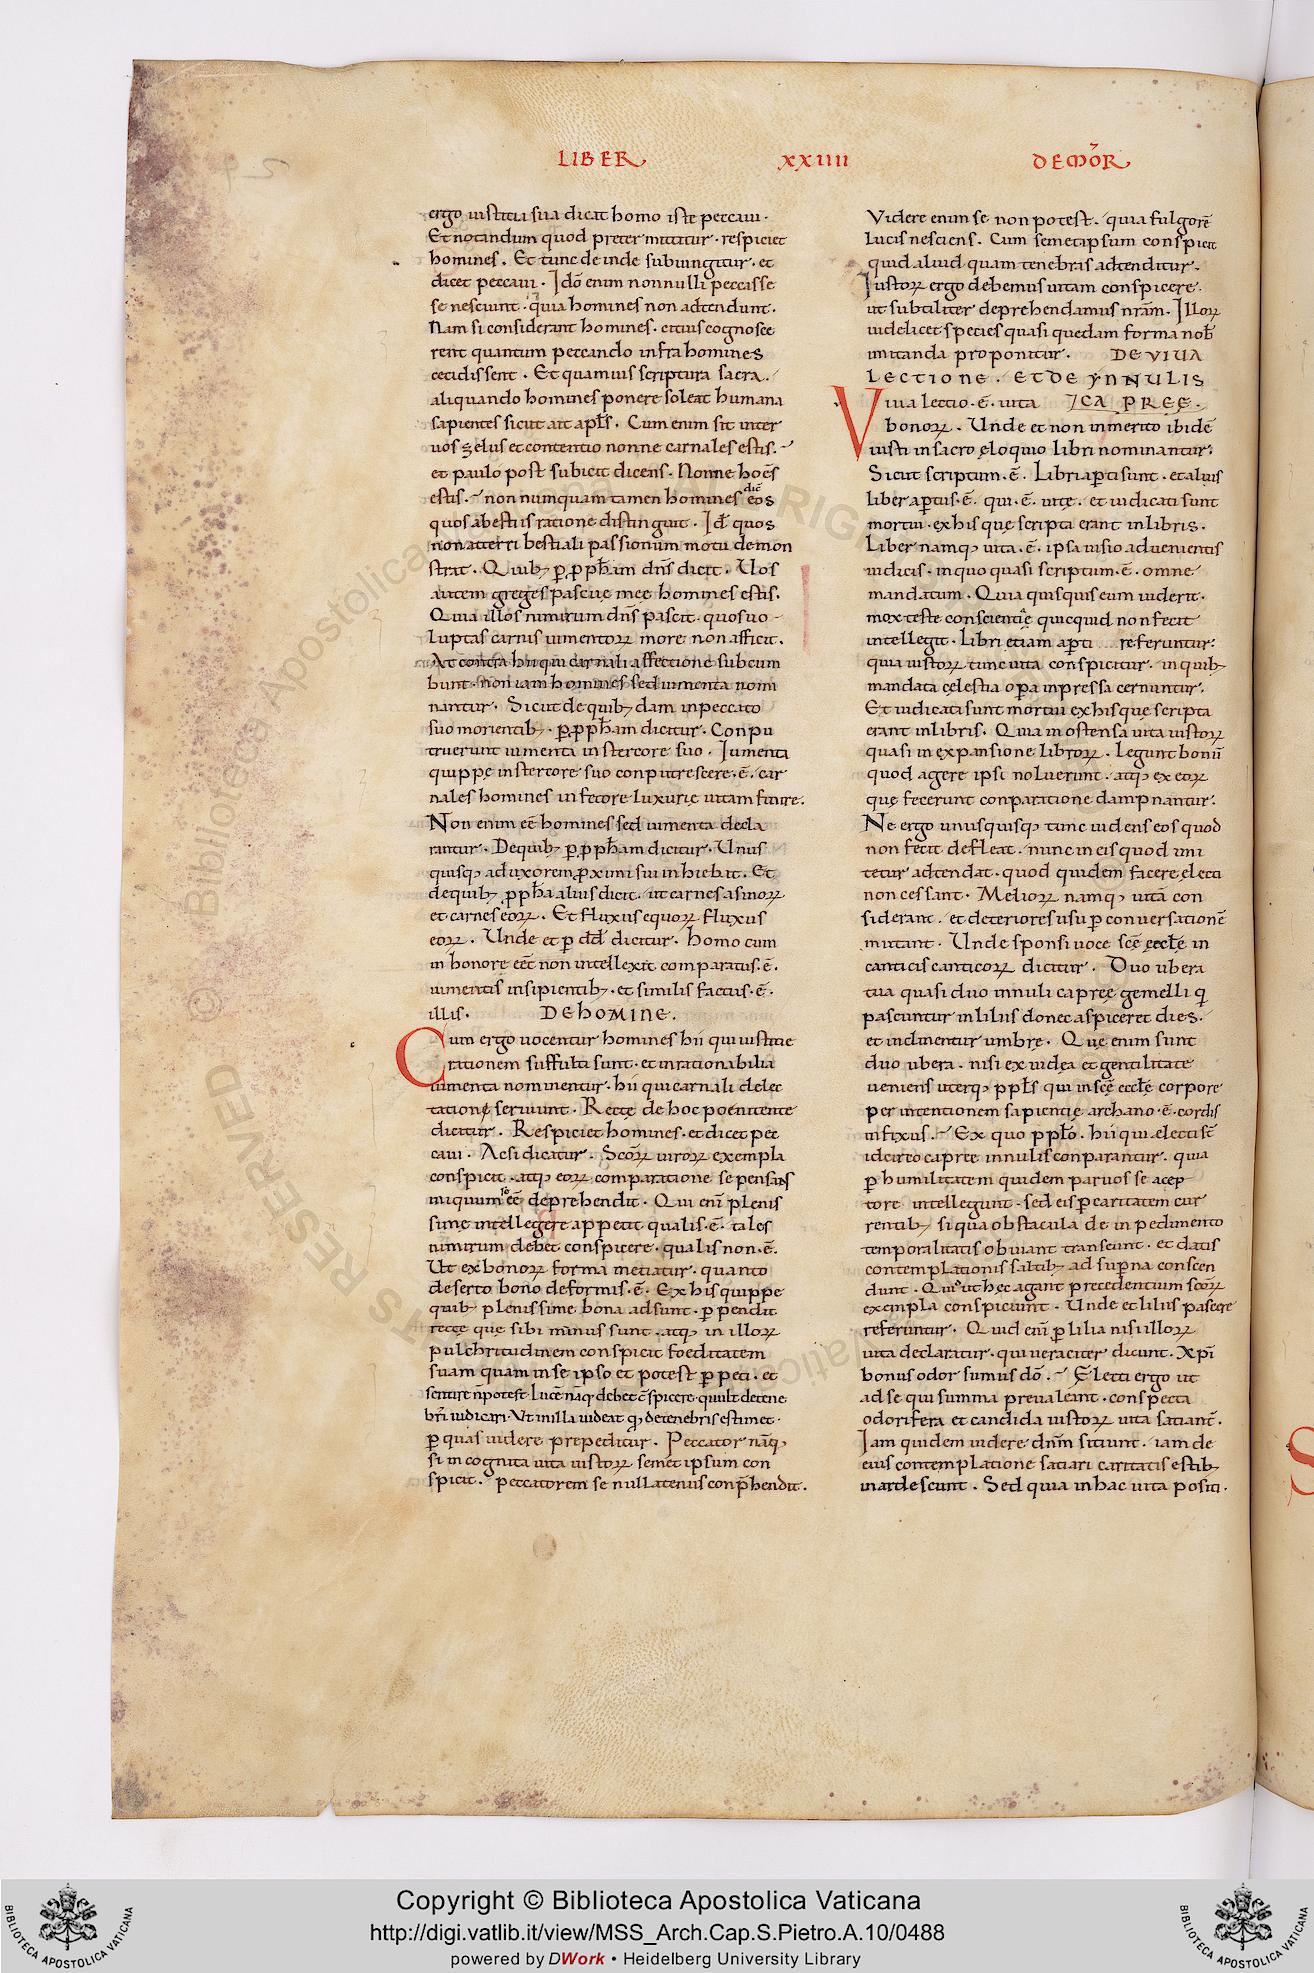 LIBER XXIIII DEMOR̄
ergo iustitia sua dicat homo iste peccaui.
Et notandum quod preter mittitur. respiciet
homines. Et tunc deinde subiungitur. et
dicet peccaui. Idō enim nonnulli peccasse
se nesciunt. quia homines non adtendunt.
Nam si considerant homines. etius cognosce
rent quantum peccando infra homines
cecidissent. Et quamuis scriptura sacra.
aliquando homines ponere soleat humana
sapientes sicut ait apl̄s. Cum enim sit inter
uos zelus et contentio nonne carnales estis.
et paulo post subicit dicens. Nonne hoēs
estis. non numquam tamen homines dic̄ eos
quos abestiis ratione distinguit. Id̄ quos
non atteri bestiali passionum motu demon
strat. Quib; ꝑ ꝓph̄am dn̄s dicit. Uos
autem greges pascue mee homines estis.
Quia illos nimirum dn̄s pascit. quos uo
luptas carnis iumentoꝝ more non afficit.
At contra hii qui carnali affectione subcum
bunt. non iam homines sed iumenta nomi
nantur. Sicut de quib; dam inpeccato
suo morientib;. ꝑ ꝓph̄am dicitur. Conpu
truerunt iumenta in stercore suo. Iumenta
quippe instercore suo conputrescere. ē. car
nales homines in fetore luxurię uitam finire.
Non enim eē homines sed iumenta decla
rantur. Dequib; ꝑ ꝓph̄am dicitur. Unus
quisq; aduxorem ꝓximi sui inhiebat. Et
dequib; ꝓph̄a alius dicit. ut carnes asinoꝝ
et carnes eoꝝ. Et fluxus equoꝝ fluxus
eoꝝ. Unde et ꝑ dd̄ dicitur. homo cum
in honore eēt non intellexit comparatus. ē.
iumentis insipientib;. et similis factus. ē.
illis. DE HOMINE.
Cum ergo uocentur homines hii qui iustitie
rationem suffulti sunt. et inrationabilia
iumenta nominentur. hii qui carnali delec
tatione seruiunt. Recte de hoc poenitente
dicitur. Respiciet homines. et dicet pec
caui. Acsi dicatur. Scōꝝ uiroꝝ exempla
conspicit. atq; eoꝝ comparatione se pensans
iniquum se eē deprehendit. Qui eni plenis
sime intellegere appetit qualis. ē. tales
nimirum debet conspicere. qualis non. ē.
Ut ex bonoꝝ forma metiatur. quanto
deserto bono deformis. ē. Ex his quippe
quib; plenissime bona adsunt. ꝑpendit
recte que sibi minus sunt. atq; in illoꝝ
pulchritudinem conspicit foeditatem
suam quam in se ipso et potest ꝑpeti. et
sentire n̄ potest. Lucē nāq; debet c̄spicere. qui uult de tene
bris iudicari. Ut in illa uideat q̄ de tenebris estimet.
ꝑ quas uidere prepeditur. Peccator nāq;
si incognita uita iustoꝝ semet ipsum con
spicit. peccatorem se nullatenus conp̄hendit.
Videre enim se non potest. quia fulgorē
lucis nesciens. Cum semetipsum conspicit
quid aliud quam tenebras adtenditur.
Iustoꝝ ergo debemus uitam conspicere.
ut subtiliter deprehendamus nr̄am. Illoꝝ
uidelicet species quasi quedam forma nob̄
imitanda proponitur. DE VIUA
LECTIONE. ET DE YNNULIS
Viua lectio. ē. uita ICA PREĘ.
bonoꝝ. Unde et non inmerito ibidē
iusti in sacro ęloquio libri nominantur.
Sicut scriptum. ē. Libri aꝑti sunt. et alius
liber aꝑtus. ē. qui. ē. uitę. et iudicati sunt
mortui. ex his quę scripta erant in libris.
Liber namq; uita. ē. ipsa uisio aduenientis
iudicis. in quo quasi scriptum. ē. omne
mandatum. Quia quisquis eum uiderit.
mox teste conscientia quicquid non fecit
intellegit. Libri etiam aꝑti referuntur:
quia iustoꝝ tunc uita conspicitur. in quib;
mandata cęlestia oꝑa inpressa cernuntur.
Et iudicati sunt mortui ex his que scripta
erant in libris. Quia in ostensa uita iustoꝝ
quasi in expansione libroꝝ. legunt bonū
quod agere ipsi noluerunt. atq; ex eoꝝ
quę fecerunt conparatione dampnantur.
Ne ergo unusquisq; tunc uidens eos quod
non fecit defleat. nunc in eis quod imi
tetur adtendat. quod quidem facere electi
non cessant. Melioꝝ namq; uitā con
siderant. et deteriores usu ꝑ conuersationē
mutant. Unde sponsi uoce scē ęccl̄ę in
canticis canticoꝝ dicitur. Duo ubera
tua quasi duo innuli capreę gemelli q̄
pascuntur in liliis donec aspiceret dies.
et inclinentur umbre. Que enim sunt
duo ubera. nisi ex iudea et gentilitate
ueniens uterq; ppl̄s qui in scē eccl̄e corpore
per intentionem sapientię archano. ē. cordis
infixus. Ex quo ppl̄o. hii qui electi sc̄
idcirco capree innulis conparantur. quia
ꝑ humilitatem quidem paruos se a cep
tore intellegunt. sed eis ꝑ caritatem cur
rentib; si qua obstacula de inpedimento
temporalitatis obuiant transeunt. et datis
contemplationis saltib; ad suꝑna conscen
dunt. Qui ut hęc agant precedentium scōꝝ
exempla conspiciunt. Unde et liliis pascere
referuntur. Quid eni ꝑ lilia nisi illoꝝ
uita declaratur. qui ueraciter dicunt. Xp̄i
bonus odor sumus dō. Electi ergo ut
ad se qui summa preualeant. conspecta
odorifera et candida iustoꝝ uita satiant.
Iam quidem uidere dn̄m sitiunt. iam de
eius contemplatione satiari caritatis estib;
inardescunt. Sed quia in hac uita positi.
Copyright © Biblioteca Apostolica Vaticana
http://digi.vatlib.it/view/MSS_Arch.Cap.S.Pietro.A.10/0488
powered by DWork • Heidelberg University Library
BIBLIOTECA APOSTOLICA VATICANA
BIBLIOTECA APOSTOLICA VATICANA